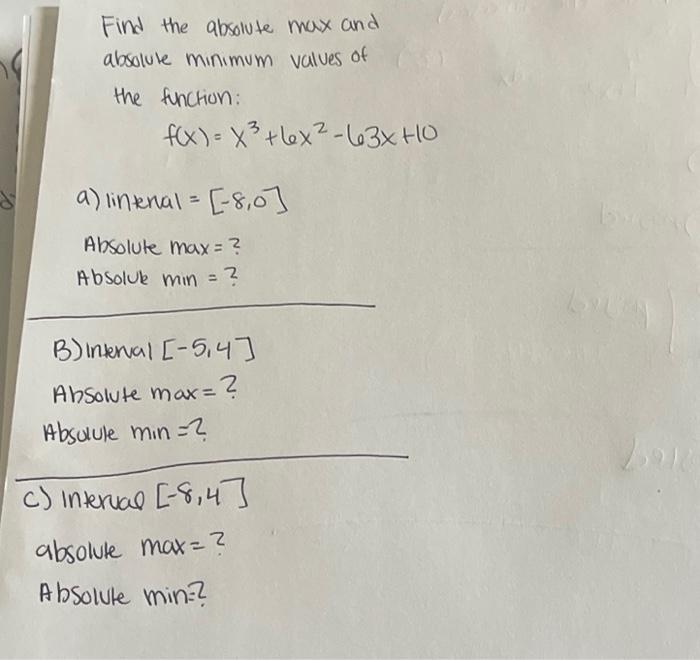 Find the absolute max and
absolute minimum values of
the function:
f(x) = x³ + 6x² - 63x + 10
a) Interval = [-8,0]
Absolute max = ?
Absolute min = ?
B) Interval [-5,4]
Absolute max = ?
Absolute min = ?
C) Interval [-8,4]
absolute max = ?
Absolute min = ?